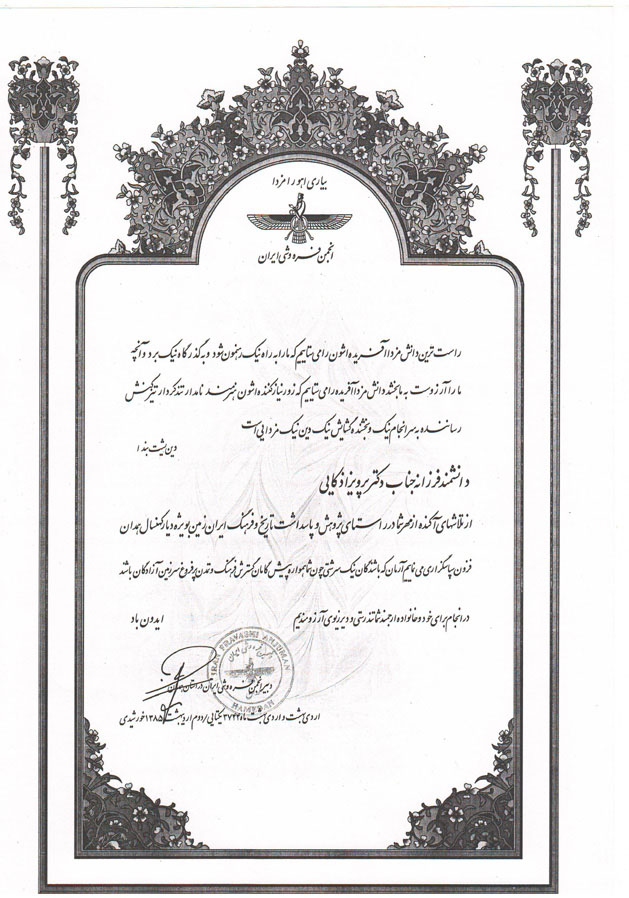 بیاری اهورامزدا
انجمن فره وشی ایران
راست ترین دانش مزدا آفریده اشون را می ستاییم که ما را به راه نیک رهنمون شود و به گذرگاه نیک برد و آنچه
ما را آرزوست به ما بخشد دانش مزدا آفریده را می ستاییم که زور نیاز کننده اشون هنرمند نامدار تند کردار تیز کنش
رساننده به سرانجام نیک و بخشنده گشایش نیک دین نیک مزدایی است
دین یشت بند ۱
دانشمند فرزانه جناب دکتر پرویز اذکایی
از تلاشهای آکنده از مهر شما در راستای پژوهش و پاسداشت تاریخ و فرهنگ ایران زمین بویژه دیار کهنسال همدان
فزون سپاسگزاری می نماییم آرمان که باشندگان نیک سرشتی چون شما همواره پیش گامان گسترش فرهنگ و تمدن پرفروغ سرزمین آزادگان باشند
در انجام برای خود و خانواده ارجمند شما تندرستی و دیرزیوی آرزومندیم
ایدون باد
IRAN FRAVASHI ANJUMAN
HAMEDAN
دبیر انجمن فره وشی ایران در استان همدان
اردی بهشت و اردی بهشت ماه ۳۷۴۴ یکتایی / دوم اردیبهشت ۱۳۸۵ خورشیدی